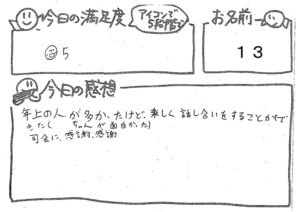 今日の満足度
アイコンで
5段階
お名前
㊁5
13
今日の感想
年上の人が多かったけど、楽しく話し合いをすることがで
きた(　ちゃんが面白かった)
司会に、感謝、感謝